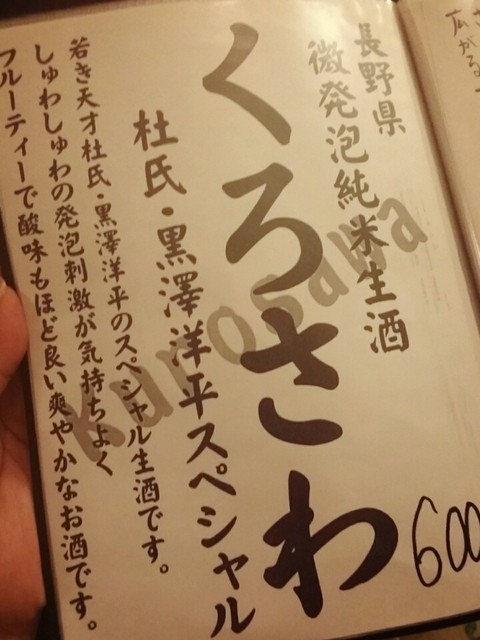 長野県
微発泡純米生酒
くろさわ
kurosawa
杜氏・黒澤洋平スペシャル
若き天才杜氏・黒澤洋平のスペシャル生酒です。
しゅわしゅわの発泡刺激が気持ちよく
フルーティーで酸味もほど良い爽やかなお酒です。
600
広がる